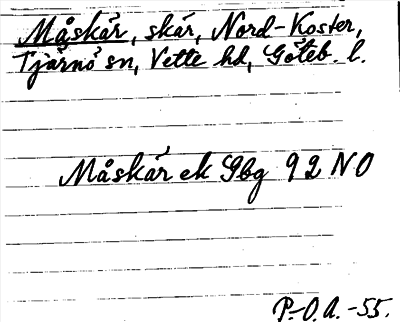 Måskär, skär, Nord-Koster,
Tjärnö sn, Vette hd, Göteb. l.
Måskär ek Gbg 92 NO
P.-O.A. -55.